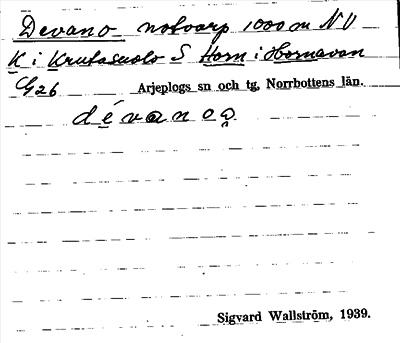 Devano notvarp 1000 m NV
K i Krutasuolo S Horn i Hornavan
G26 Arjeplogs sn och tg, Norrbottens län.
dévanǫ
Sigvard Wallström, 1939.